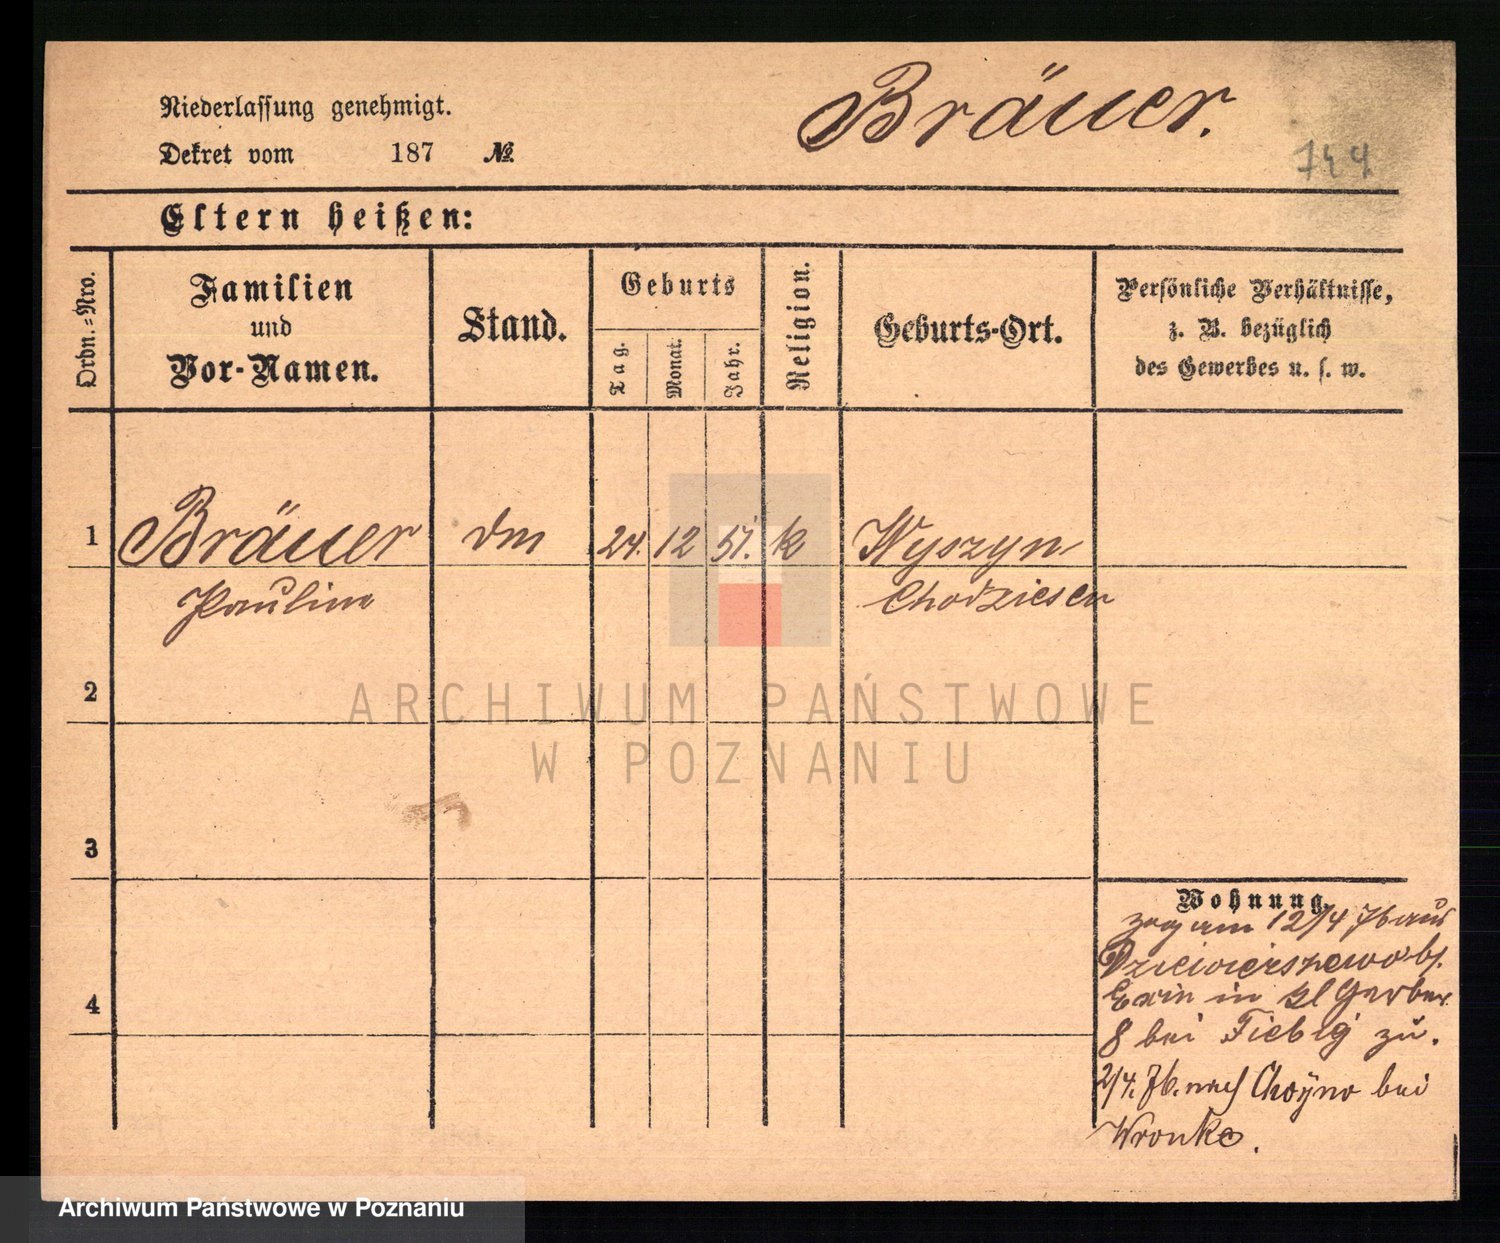 Niederlassung genehmigt.
Bräuer.
Dekret vom 187 №
744
Eltern heißen:
Ordn.-Nro.
Familien
und
Vor-Namen.
Stand.
Geburts
Tag.
Monat.
Jahr.
Religion.
Geburts-Ort.
Persönliche Verhältnisse,
z. B. bezüglich
des Gewerbes u. s. w.
1 Bräuer 24. 12 51. k Wyszyn
Pauline Chodziesen
2
ARCHIWUM PAŃSTWOWE
W POZNANIU
3
Wohnung.
zog am 12/4 76 aus
Dziewierszewo b/.
Exin in Kl Gerber
8 bei Fiebig zu.
2/4. 76. nach Choÿno bei
Wronke.
4
Archiwum Państwowe w Poznaniu